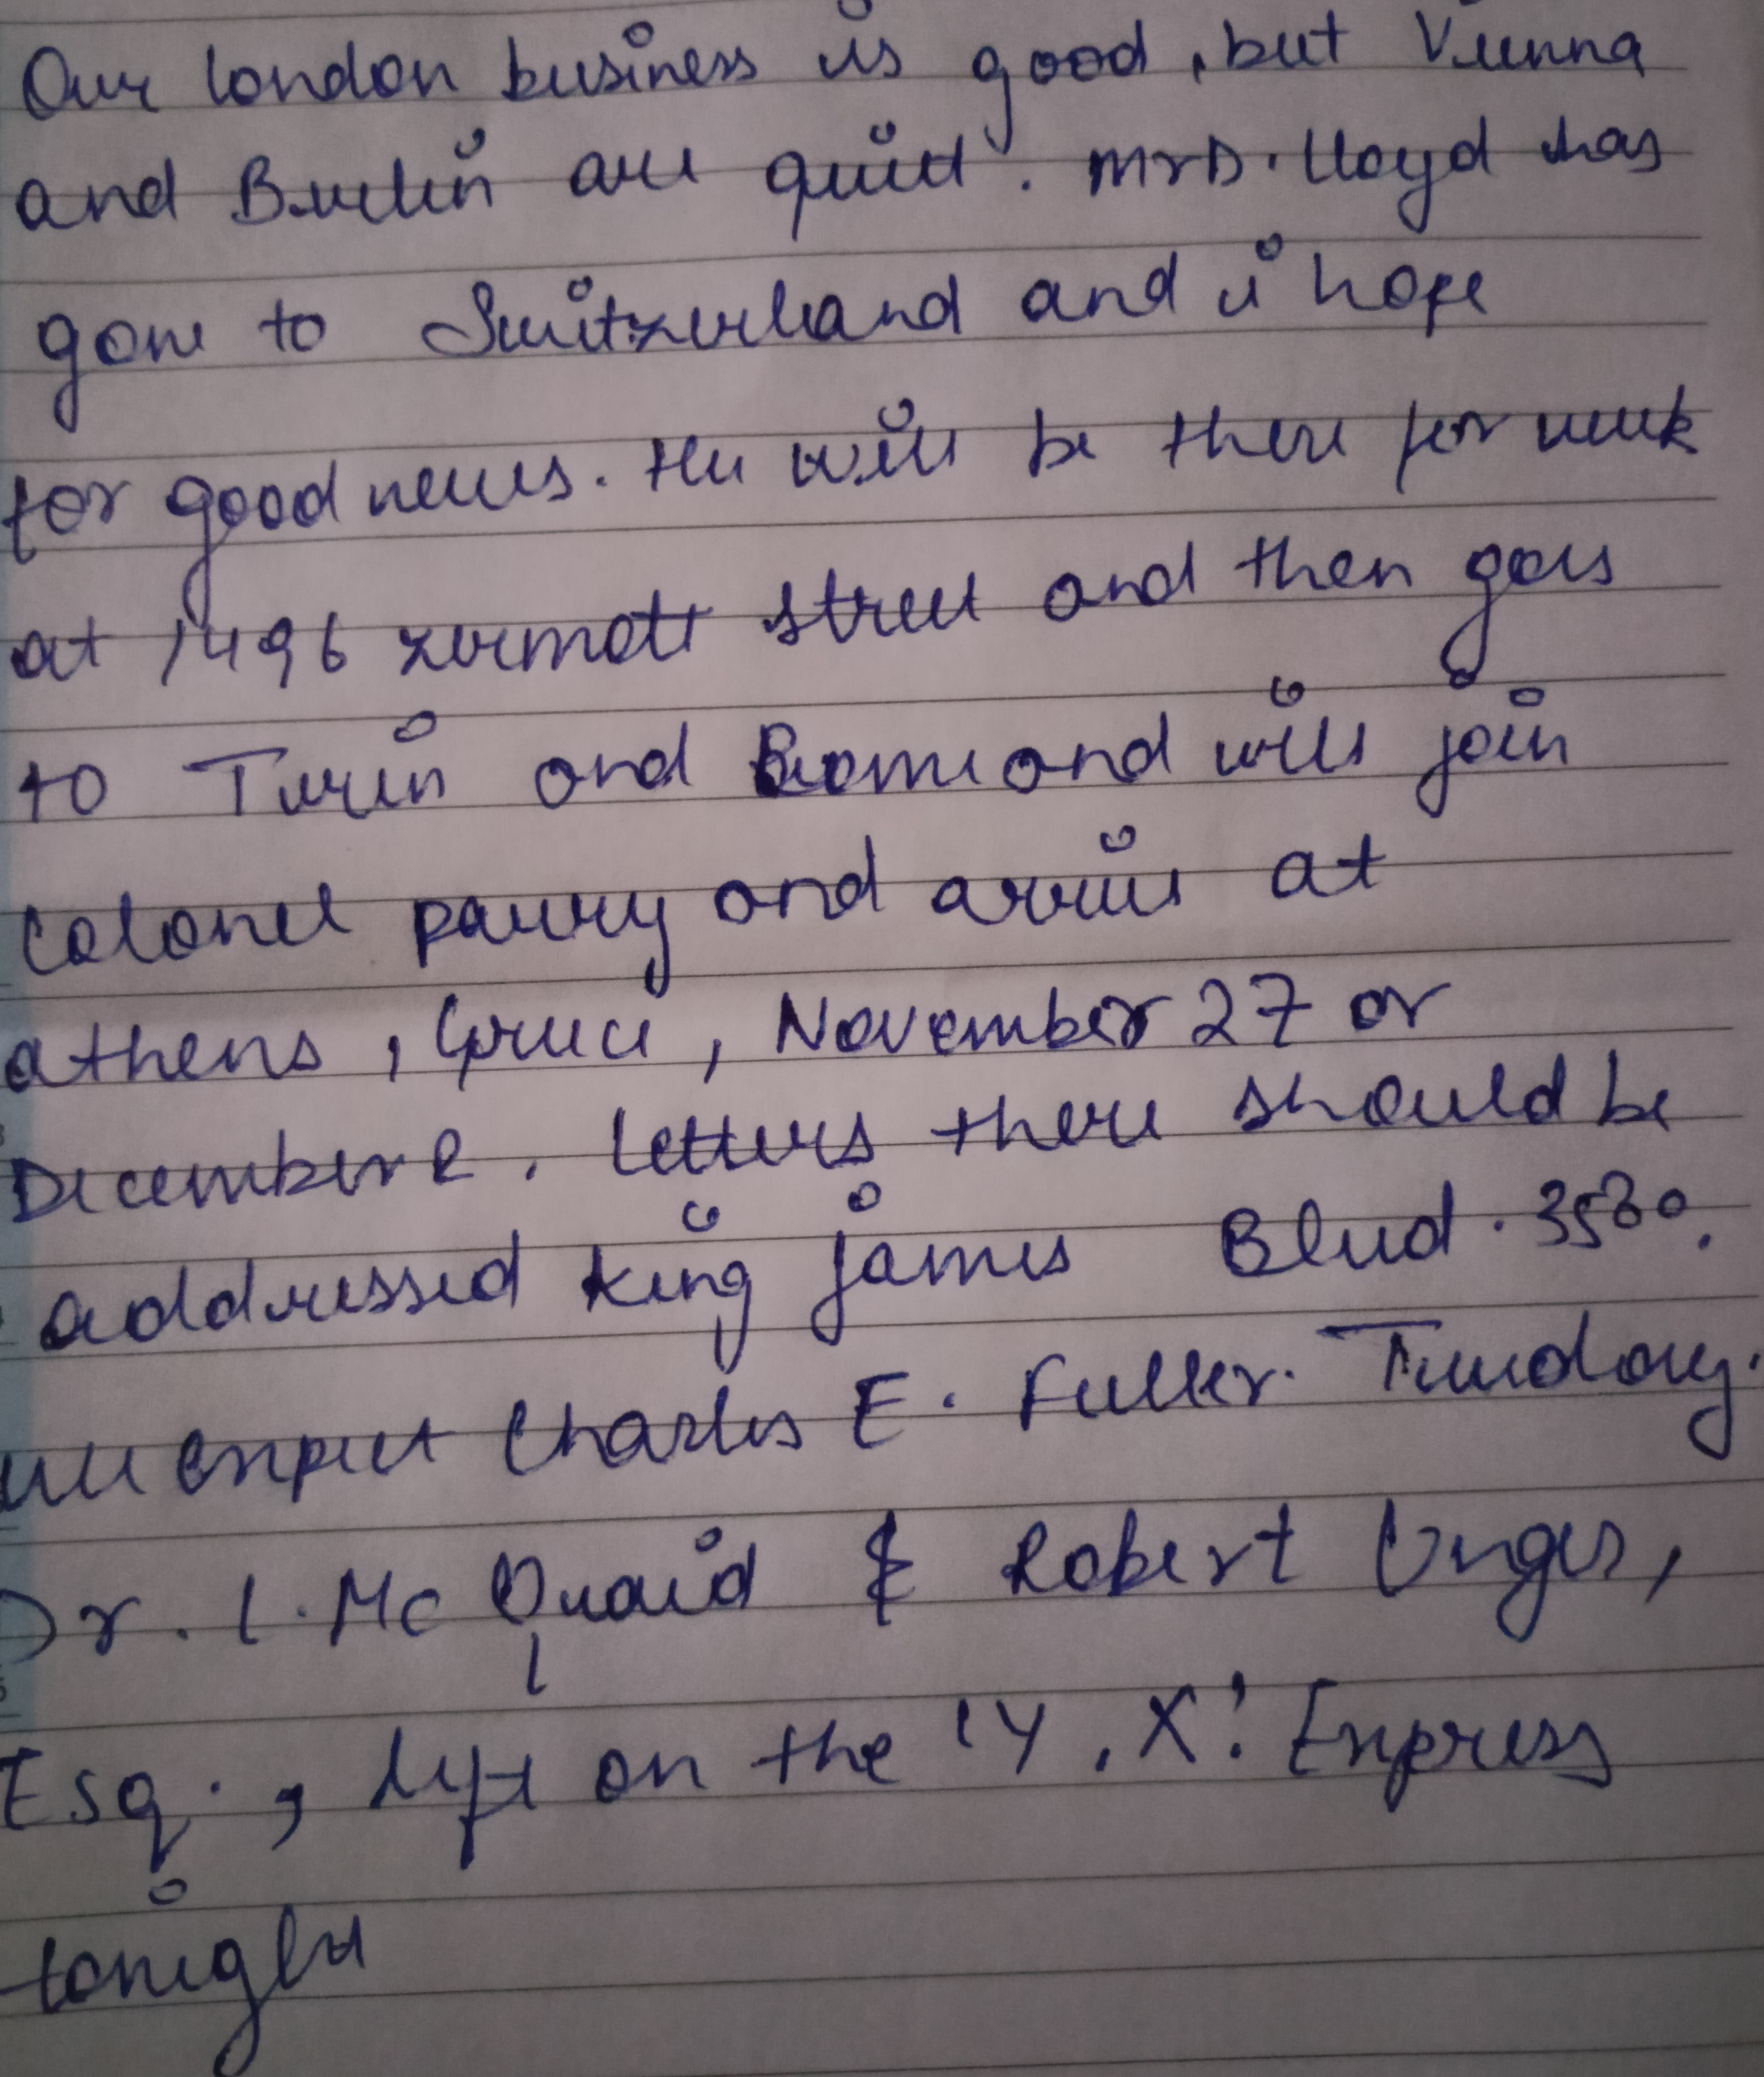 Our london business is good, but Vienna
and Berlin are quiet. Mrs. Lloyd has
gone to Switzerland and i hope
for good news. He will be there for week
at 1496 zermott street and then goes
to Turin and Rome and will join
Colonel parry and arrive at
athens, Greece, November 27 or
December 2. Letters there should be
addressed king james Blvd. 3580.
we expect Charles E. Fuller. Tuesday.
Dr. L. Mc Quaid & Robert Unger,
Esq., left on the 'Y. X.' Express
tonight